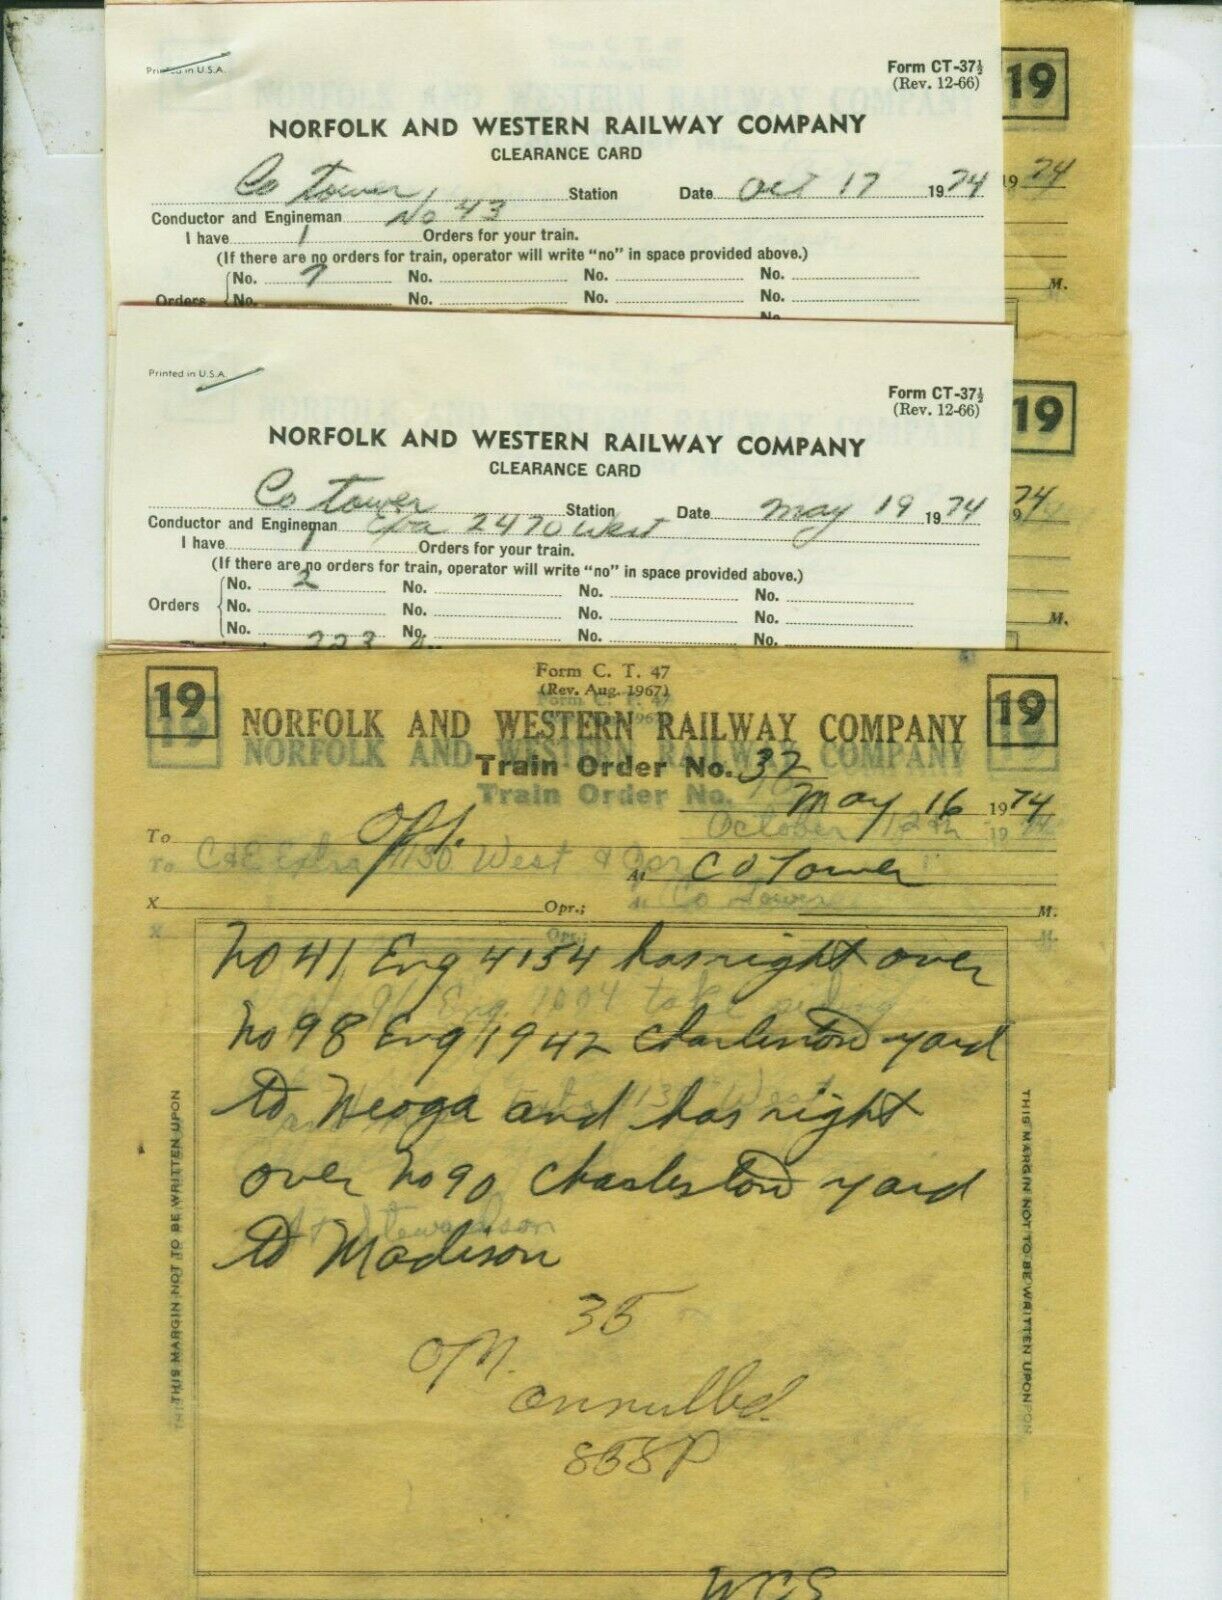 Printed in U.S.A.
Form CT-37½
(Rev. 12-66)
19
NORFOLK AND WESTERN RAILWAY COMPANY
CLEARANCE CARD
Co Tower Station Date Oct 17 1974
1974
Conductor and Engineman No 43
I have 1 Orders for your train.
(If there are no orders for train, operator will write "no" in space provided above.)
No. 7 No. No. No.
M.
Orders No. No. No. No.
No.
Printed in U.S.A.
Form CT-37½
(Rev. 12-66)
19
NORFOLK AND WESTERN RAILWAY COMPANY
CLEARANCE CARD
Co Tower Station Date May 19 1974
74
9
Conductor and Engineman Exa 2470 West
I have 1 Orders for your train.
(If there are no orders for train, operator will write "no" in space provided above.)
No. 2 No. No. No.
Orders No. No. No. No.
M.
No. No. No. No.
223
Form C. T. 47
(Rev. Aug. 1967)
19
19
NORFOLK AND WESTERN RAILWAY COMPANY
NORFOLK AND WESTERN RAILWAY COMPANY
Train Order No. 32
Train Order No.
May 16 1974
October 12th 1974
To Opr.
At C O Tower
To C&E Extra 4130 West & Opr
At Co Tower
X Opr.; M.
X Opr.; M.
No 41 Eng 4154 has right over
No 98 Eng 1942 Charleston yard
to Neoga and has right
over No 90 Charleston yard
to Madison
At Stewardson
35
OM.
annulled.
858P
WCS
THIS MARGIN NOT TO BE WRITTEN UPON
THIS MARGIN NOT TO BE WRITTEN UPON